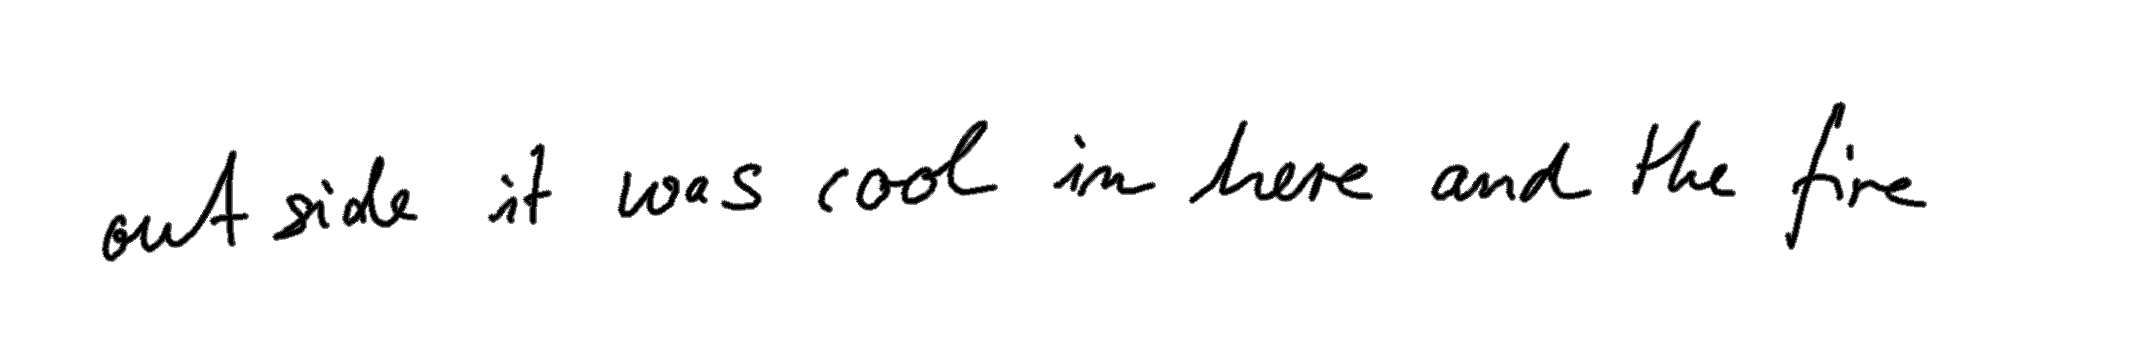 out side it was cool in here and the fire